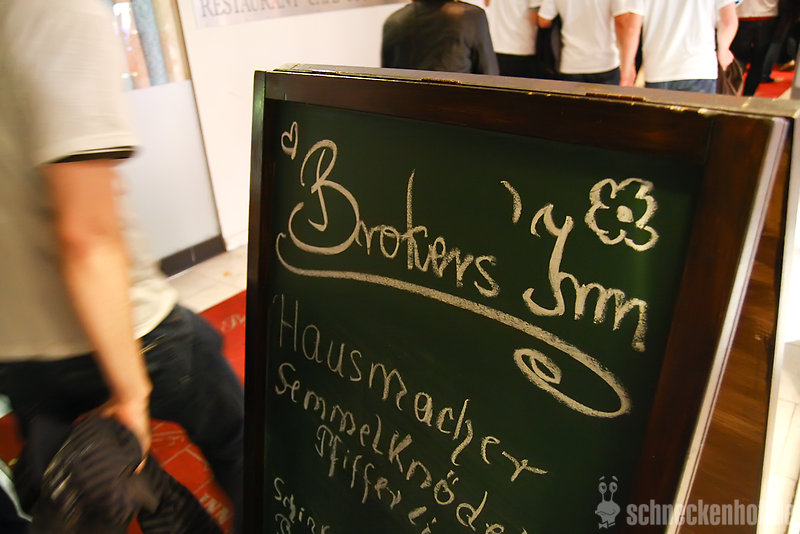 RESTAURANT
Brokers' Inn
Hausmacher
Semmelknödel
Pfifferli
schneckenho